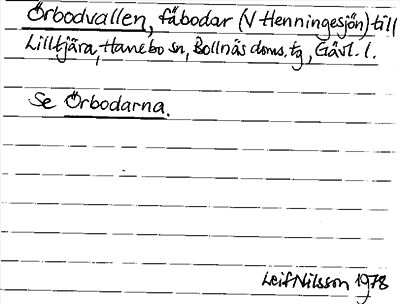 Örbodvallen, fäbodar (V Henningesjön) till
Lilltjära, Hanebo sn, Bollnäs doms. tg, Gävl. l.
Se Örbodarna.
Leif Nilsson 1978